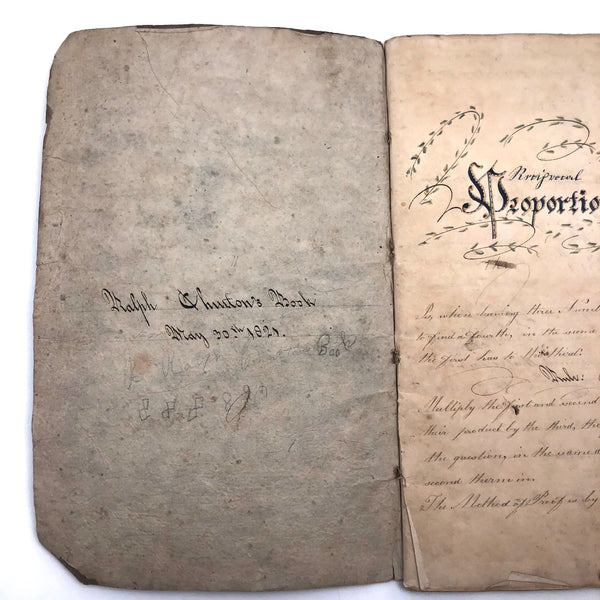 Ralph Churton's Book
May 30th 1821.
Book
Reciprocal
Proportio
Is, when having three Numb
to find a fourth, in the same
the first has to the third:
Rule:
Multiply the first and second
their product by the third, the
the question, in the same d
second therm in.
The Method of Proof is by